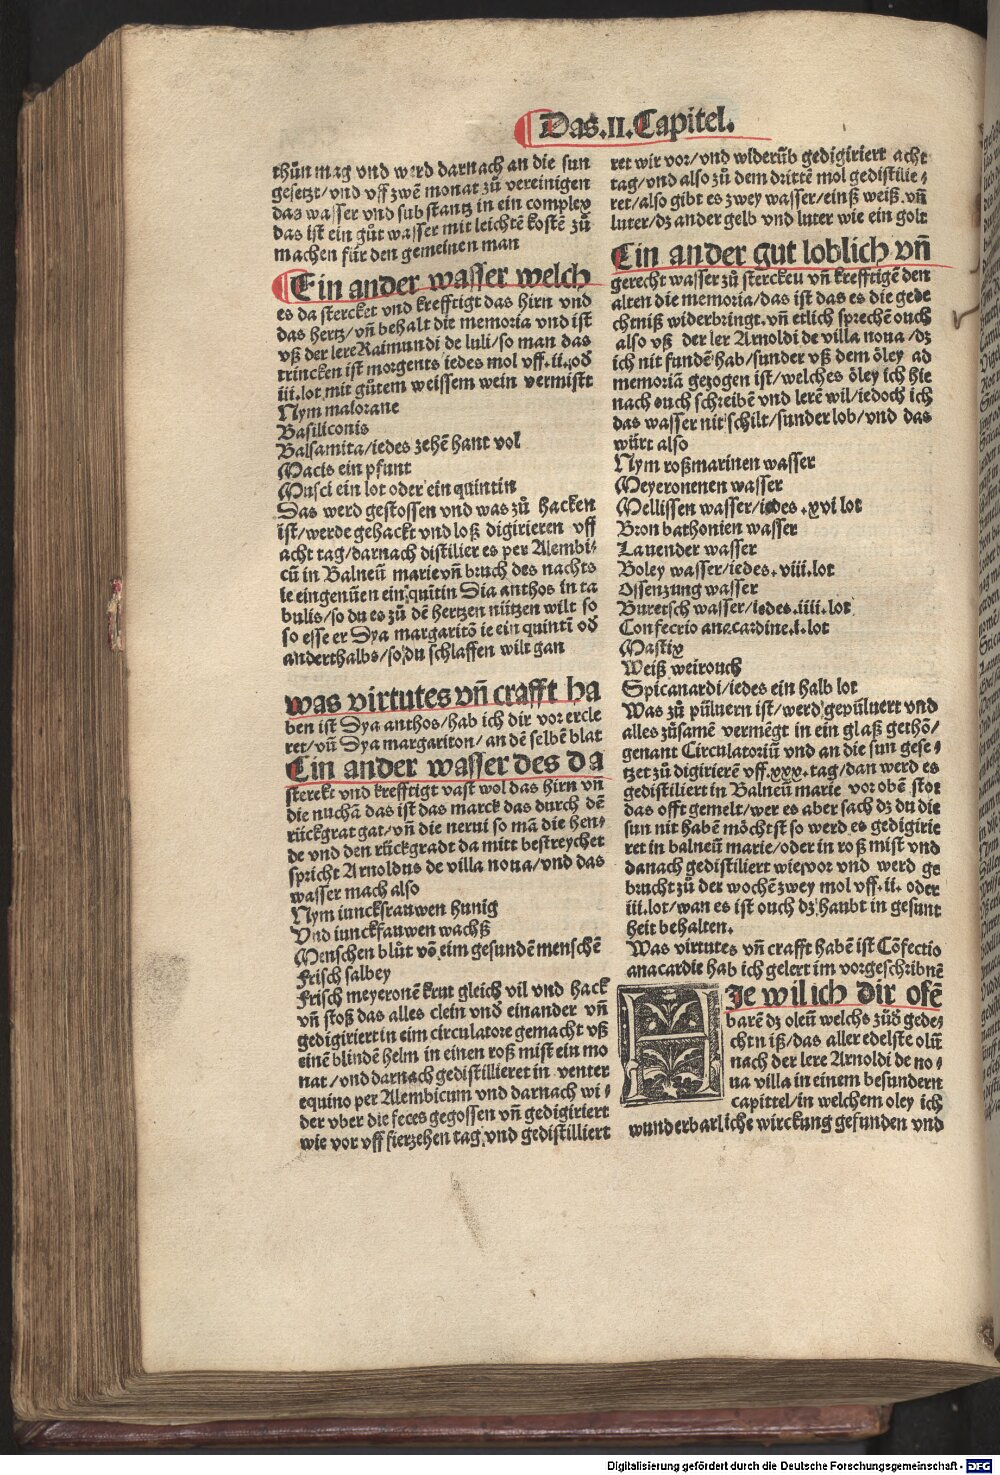 Das.II.Capitel.
thůn mag vnd werd darnach an die sun
gesetzt/vnd vff zwē monat zů vereinigen
das wasser vnd substantz in ein complex
das ist ein gůt wasser mit leichtē kostē zů
machen für den gemeinen man
Ein ander wasser welch
es da stercket vnd krefftigt das hirn vnd
das hertz/vñ behalt die memoria vnd ist
vß der lere Raimundi de luli/so man das
trincken ist morgents iedes mol vff.ii.od
iii.lot mit gůtem weissem wein vermistt
Nym maiorane
Basiliconis
Balsamita/iedes zehē hant vol
Macis ein pfunt
Musci ein lot oder ein quintin
Das werd gestossen vnd was zů hacken
ist/werde gehackt vnd loß digirieren vff
acht tag/darnach distilier es per Alembi-
cū in Balneū marie vñ bruch des nachts
ie eingenūen ein quītin Dia anthos in ta
bulis/so du es zů dē hertzen nützen wilt so
so esse er Dya margaritō ie ein quintī od
anderthalbs/so du schlaffen wilt gan
was virtutes vñ crafft ha
ben ist Dya anthos/hab ich dir vor ercle
ret/vñ Dya margariton/an dē selbē blat
Ein ander wasser des da
sterckt vnd krefftigt vast wol das hirn vñ
die nuchā das ist das marck das durch dē
rückgrat gat/vñ die nerui so mā die hen-
de vnd den rückgradt da mitt bestreychet
spricht Arnoldus de villa noua/vnd das
wasser mach also
Nym iunckfrauwen hunig
Vnd iunckfauwen wachß
Menschen blůt vō eim gesundē menschē
Frisch salbey
Frisch meyeronē krut gleich vil vnd hack
vñ stoß das alles clein vnd einander vñ
gedigiriert in eim circulatore gemacht vß
einē blindē helm in einen roß mist ein mo
nat/vnd darnach gedistillieret in venter
equino per Alembicum vnd darnach wi-
der vber die feces gegossen vñ gedigiriert
wie vor vff fierzehen tag vnd gedistilliert
ret wir vor/vnd widerūb gedigiriert acht
tag/vnd also zů dem drittē mol gedistilie-
ret/also gibt es zwey wasser/einß weiß vñ
luter/dz ander gelb vnd luter wie ein golt
Ein ander gut loblich vñ
gerecht wasser zů sterckeu vñ krefftigē den
alten die memoria/das ist das es die gede
chtniß widerbringt.vñ etlich sprechē ouch
also vß der ler Arnoldi de villa noua/dz
ich nit fundē hab/sunder vß dem öley ad
memoriā gezogen ist/welches öley ich hie
nach ouch schreibē vnd lerē wil/iedoch ich
das wasser nit schilt/sunder lob/vnd das
würt also
Nym roßmarinen wasser
Meyeronenen wasser
Mellissen wasser/iedes.xvi lot
Bron bathonien wasser
Lauender wasser
Boley wasser/iedes.viii.lot
Ossenzung wasser
Buretsch wasser/iedes.iiii.lot
Confectio anacardine.i.lot
Mastix
Weiß weirouch
Spicanardi/iedes ein halb lot
Was zů půluern ist/werd gepůluert vnd
alles zůsamē vermēgt in ein glaß gethō/
genant Circulatoriū vnd an die sun gese-
tzet zů digirierē vff.xxx.tag/dan werd es
gedistiliert in Balneū marie vor obē stot
das offt gemelt/wer es aber sach dz du die
sun nit habē möchtst so werd es gedigirie
ret in balneū marie/oder in roß mist vnd
danach gedistiliert wie vor vnd werd ge
brucht zů der wochē zwey mol vff.ii. oder
iii.lot/wan es ist ouch dz haubt in gesunt
heit behalten.
Was virtutes vñ crafft habē ist Cōfectio
anacardie hab ich gelert im vorgeschribnē
HIe wil ich dir ofē
barē dz oleū welchs zůd gedez
chtn iß/das aller edelste olū
nach der lere Arnoldi de no-
ua villa in einem besundern
capittel/in welchem oley ich
wunderbarliche wirckung gefunden vnd
Digitalisierung gefördert durch die Deutsche Forschungsgemeinschaft - DFG